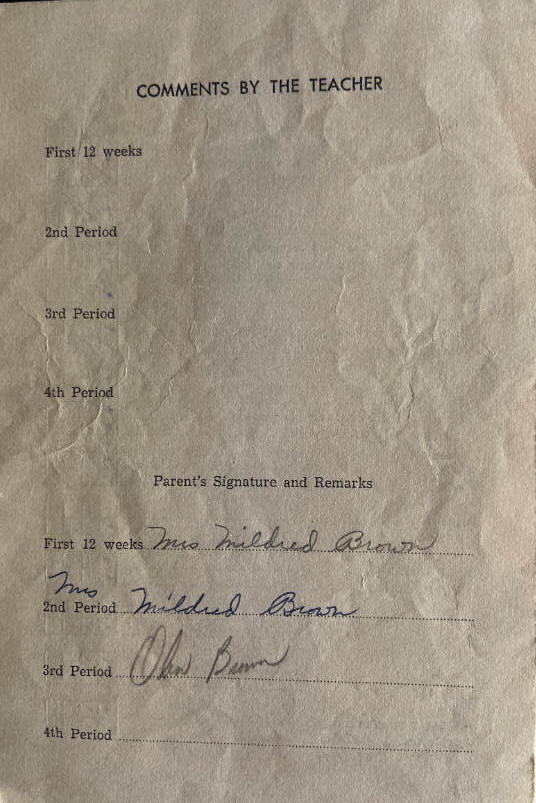 COMMENTS BY THE TEACHER
First 12 weeks
2nd Period
3rd Period
4th Period
Parent's Signature and Remarks
First 12 weeks Mrs Mildred Brown
Mrs
2nd Period Mildred Brown
3rd Period Brown
4th Period